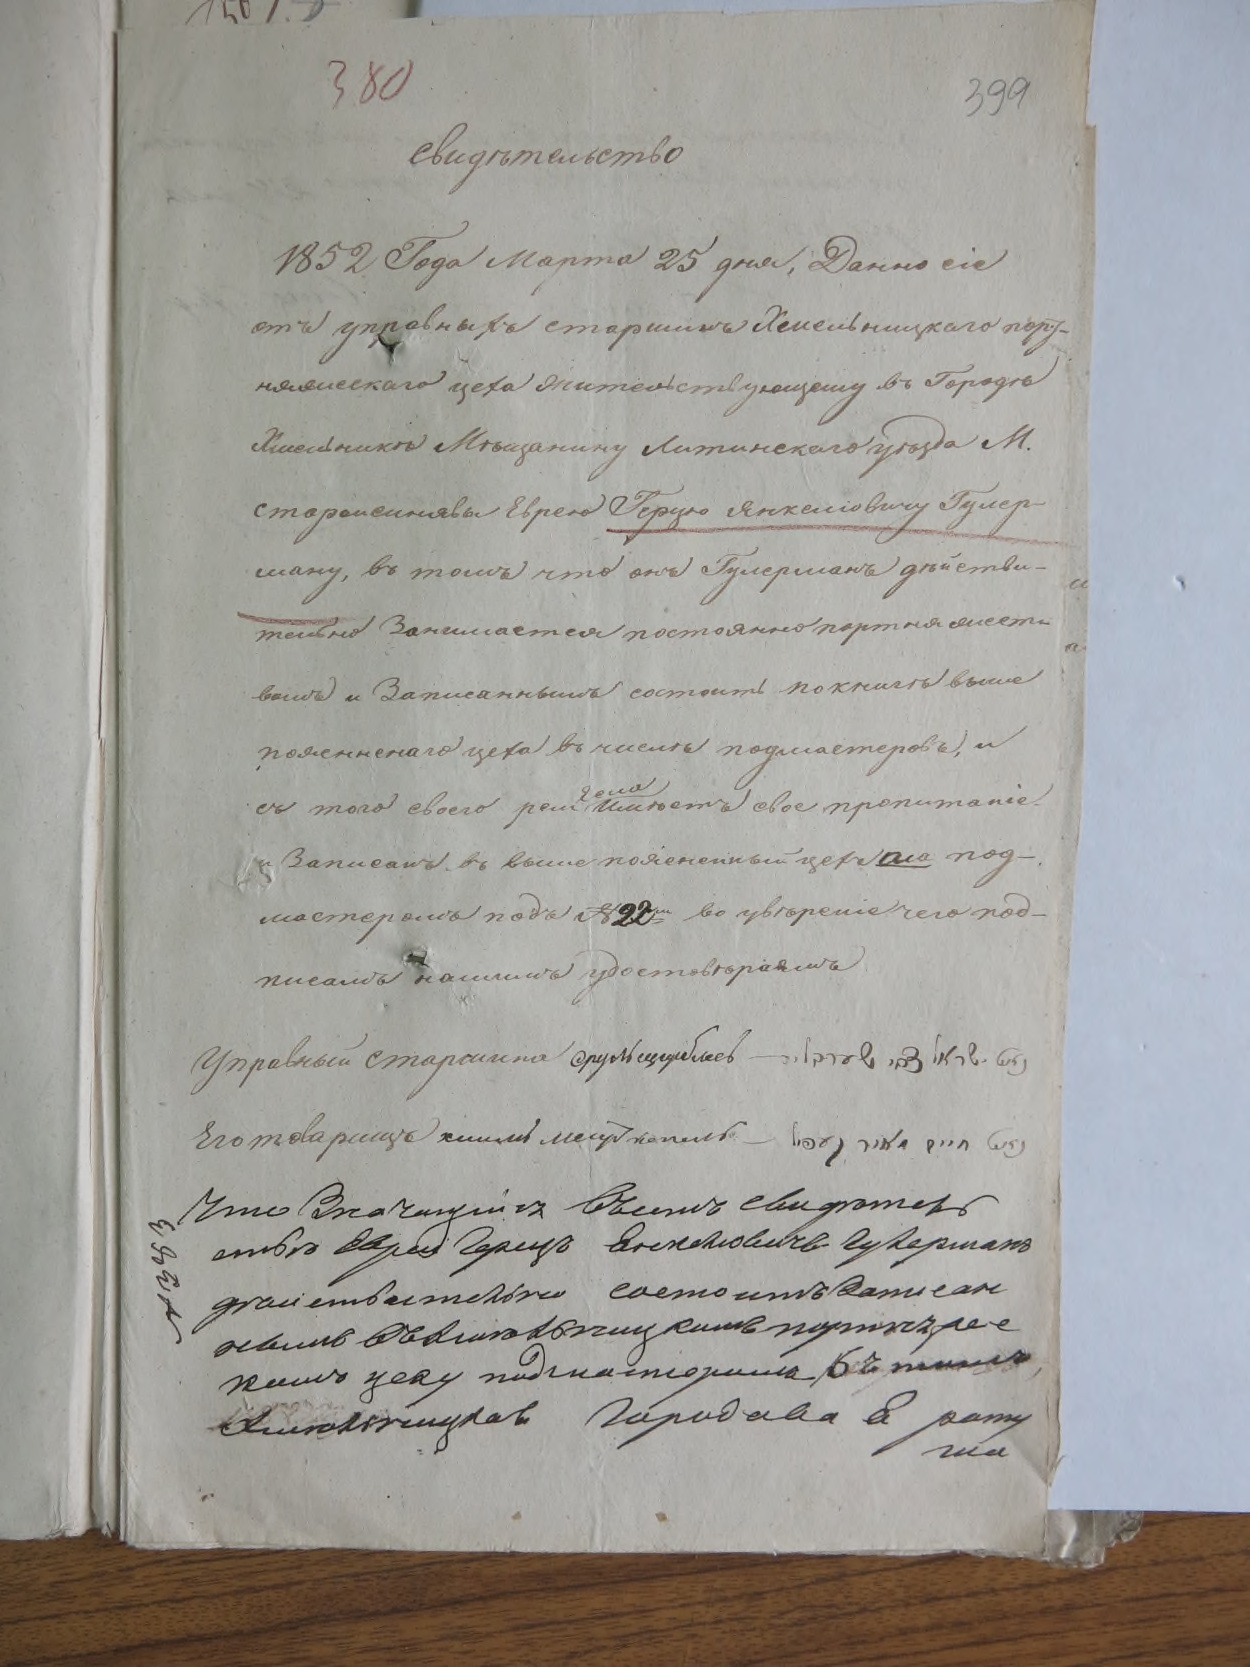 380
399
Свидѣтельство
1852 Года Марта 25 дня, Данно сіе
отъ управныхъ старшинъ Хмельницкаго порт-
няжескаго цеха жительствующему въ Городѣ
Хмельникѣ Мѣщанину Литинскаго уѣзда М.
старосинявы Еврею Герцю Янкеліовичу Гулер-
ману, въ томъ что онъ Гулерманъ дѣйстви-
тельно Занимается постоянно портняжест
вомъ и Записаннымъ состоитъ по книгѣ выше
поясненнаго цеха въ числѣ подмастеровъ, и
съ того своего ремесла имѣетъ свое пропитаніе
и Записанъ въ выше поясненный цехъ под-
мастеромъ подъ №22 во увѣреніе чего под-
писомъ нашимъ удостовѣряемъ
Управный Старшина Срулъ
Его товарищъ хаимъ меир
Что Значащийся Въсемъ свидѣтель
ствѣ Еврей Герцъ Янкелювичъ Гулерманъ
дѣйствительно состоитъ Записан
нымъ Въхмѣльницкомъ
комъ цеху подмастеромъ Въ томъ
Хмѣльницкая Городовая рату
ша
№ 3383